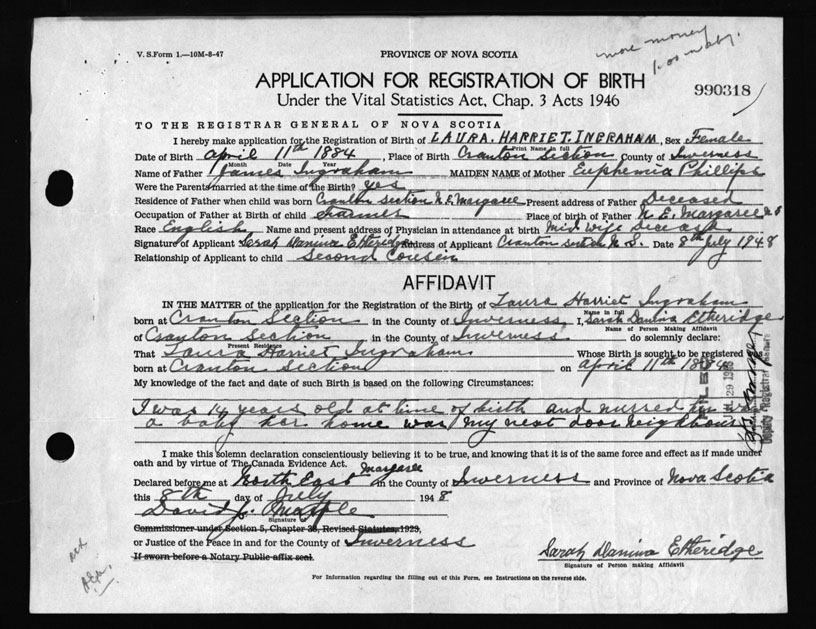 V. S. Form 1.—10M-8-47
PROVINCE OF NOVA SCOTIA
more money
990318
APPLICATION FOR REGISTRATION OF BIRTH
Under the Vital Statistics Act, Chap. 3 Acts 1946
TO THE REGISTRAR GENERAL OF NOVA SCOTIA
I hereby make application for the Registration of Birth of LAURA. HARRIET. INGRAHAM, Sex Female
Print Name in full
Date of Birth April 11th 1884, Place of Birth Cranton Section County of Inverness
Month Date Year
Name of Father James Ingraham MAIDEN NAME of Mother Euphemia Phillips
Were the Parents married at the time of the Birth? yes
Residence of Father when child was born Cranton Section N.E. Margaree Present address of Father Deceased
Occupation of Father at Birth of child Farmer Place of birth of Father N. E. Margaree N S
Race English Name and present address of Physician in attendance at birth Mid Wife Deceased
Signature of Applicant Sarah Danina Etheridge Address of Applicant Cranton section N. S. Date 8th July 1948
Relationship of Applicant to child Second Cousin
AFFIDAVIT
IN THE MATTER of the application for the Registration of the Birth of Laura Harriet Ingraham
Name in full
born at Cranton Section in the County of Inverness I, Sarah Danina Etheridge
Name of Person Making Affidavit
of Cranton Section in the County of Inverness do solemnly declare:
Present Residence
That Laura Harriet Ingraham Whose Birth is sought to be registered
born at Cranton Section on April 11th 1884
My knowledge of the fact and date of such Birth is based on the following Circumstances:
I was 14 years old at time of birth and nursed her as
a baby her home was my next door neighbour
Deputy Registrar
I make this solemn declaration conscientiously believing it to be true, and knowing that it is of the same force and effect as if made under
oath and by virtue of The Canada Evidence Act.
Declared before me at North East Margaree in the County of Inverness and Province of Nova Scotia
this 8th day of July 1948
David J.
Signature
Commissioner under Section 5, Chapter 38, Revised Statutes, 1923,
or Justice of the Peace in and for the County of Inverness
If sworn before a Notary Public affix seal.
Sarah Danina Etheridge
Signature of Person making Affidavit
For Information regarding the filling out of this Form, see Instructions on the reverse side.